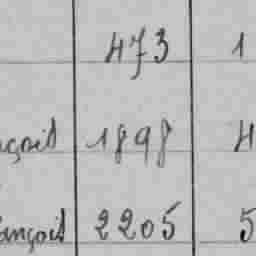 473 1
çois 1898 4
ançois 2205 5